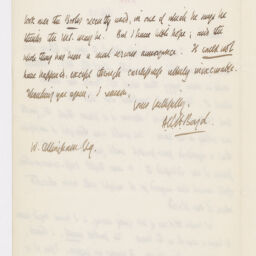 look over the Books recently sold, in one of which he says he
thinks the MS. may be. But I have little hope; and the
whole thing has been a most serious annoyance. It could not
have happened, except through carelessness utterly inexcusable.
Thanking you again, I remain,
Yours faithfully,
A.K.H. Boyd.
W. Allingham Esq.